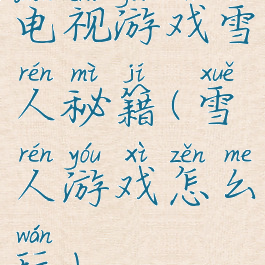 电视游戏雪
rén mì jí xuě
人秘籍(雪
rén yóu xì zěn me
人游戏怎么
wán
玩)